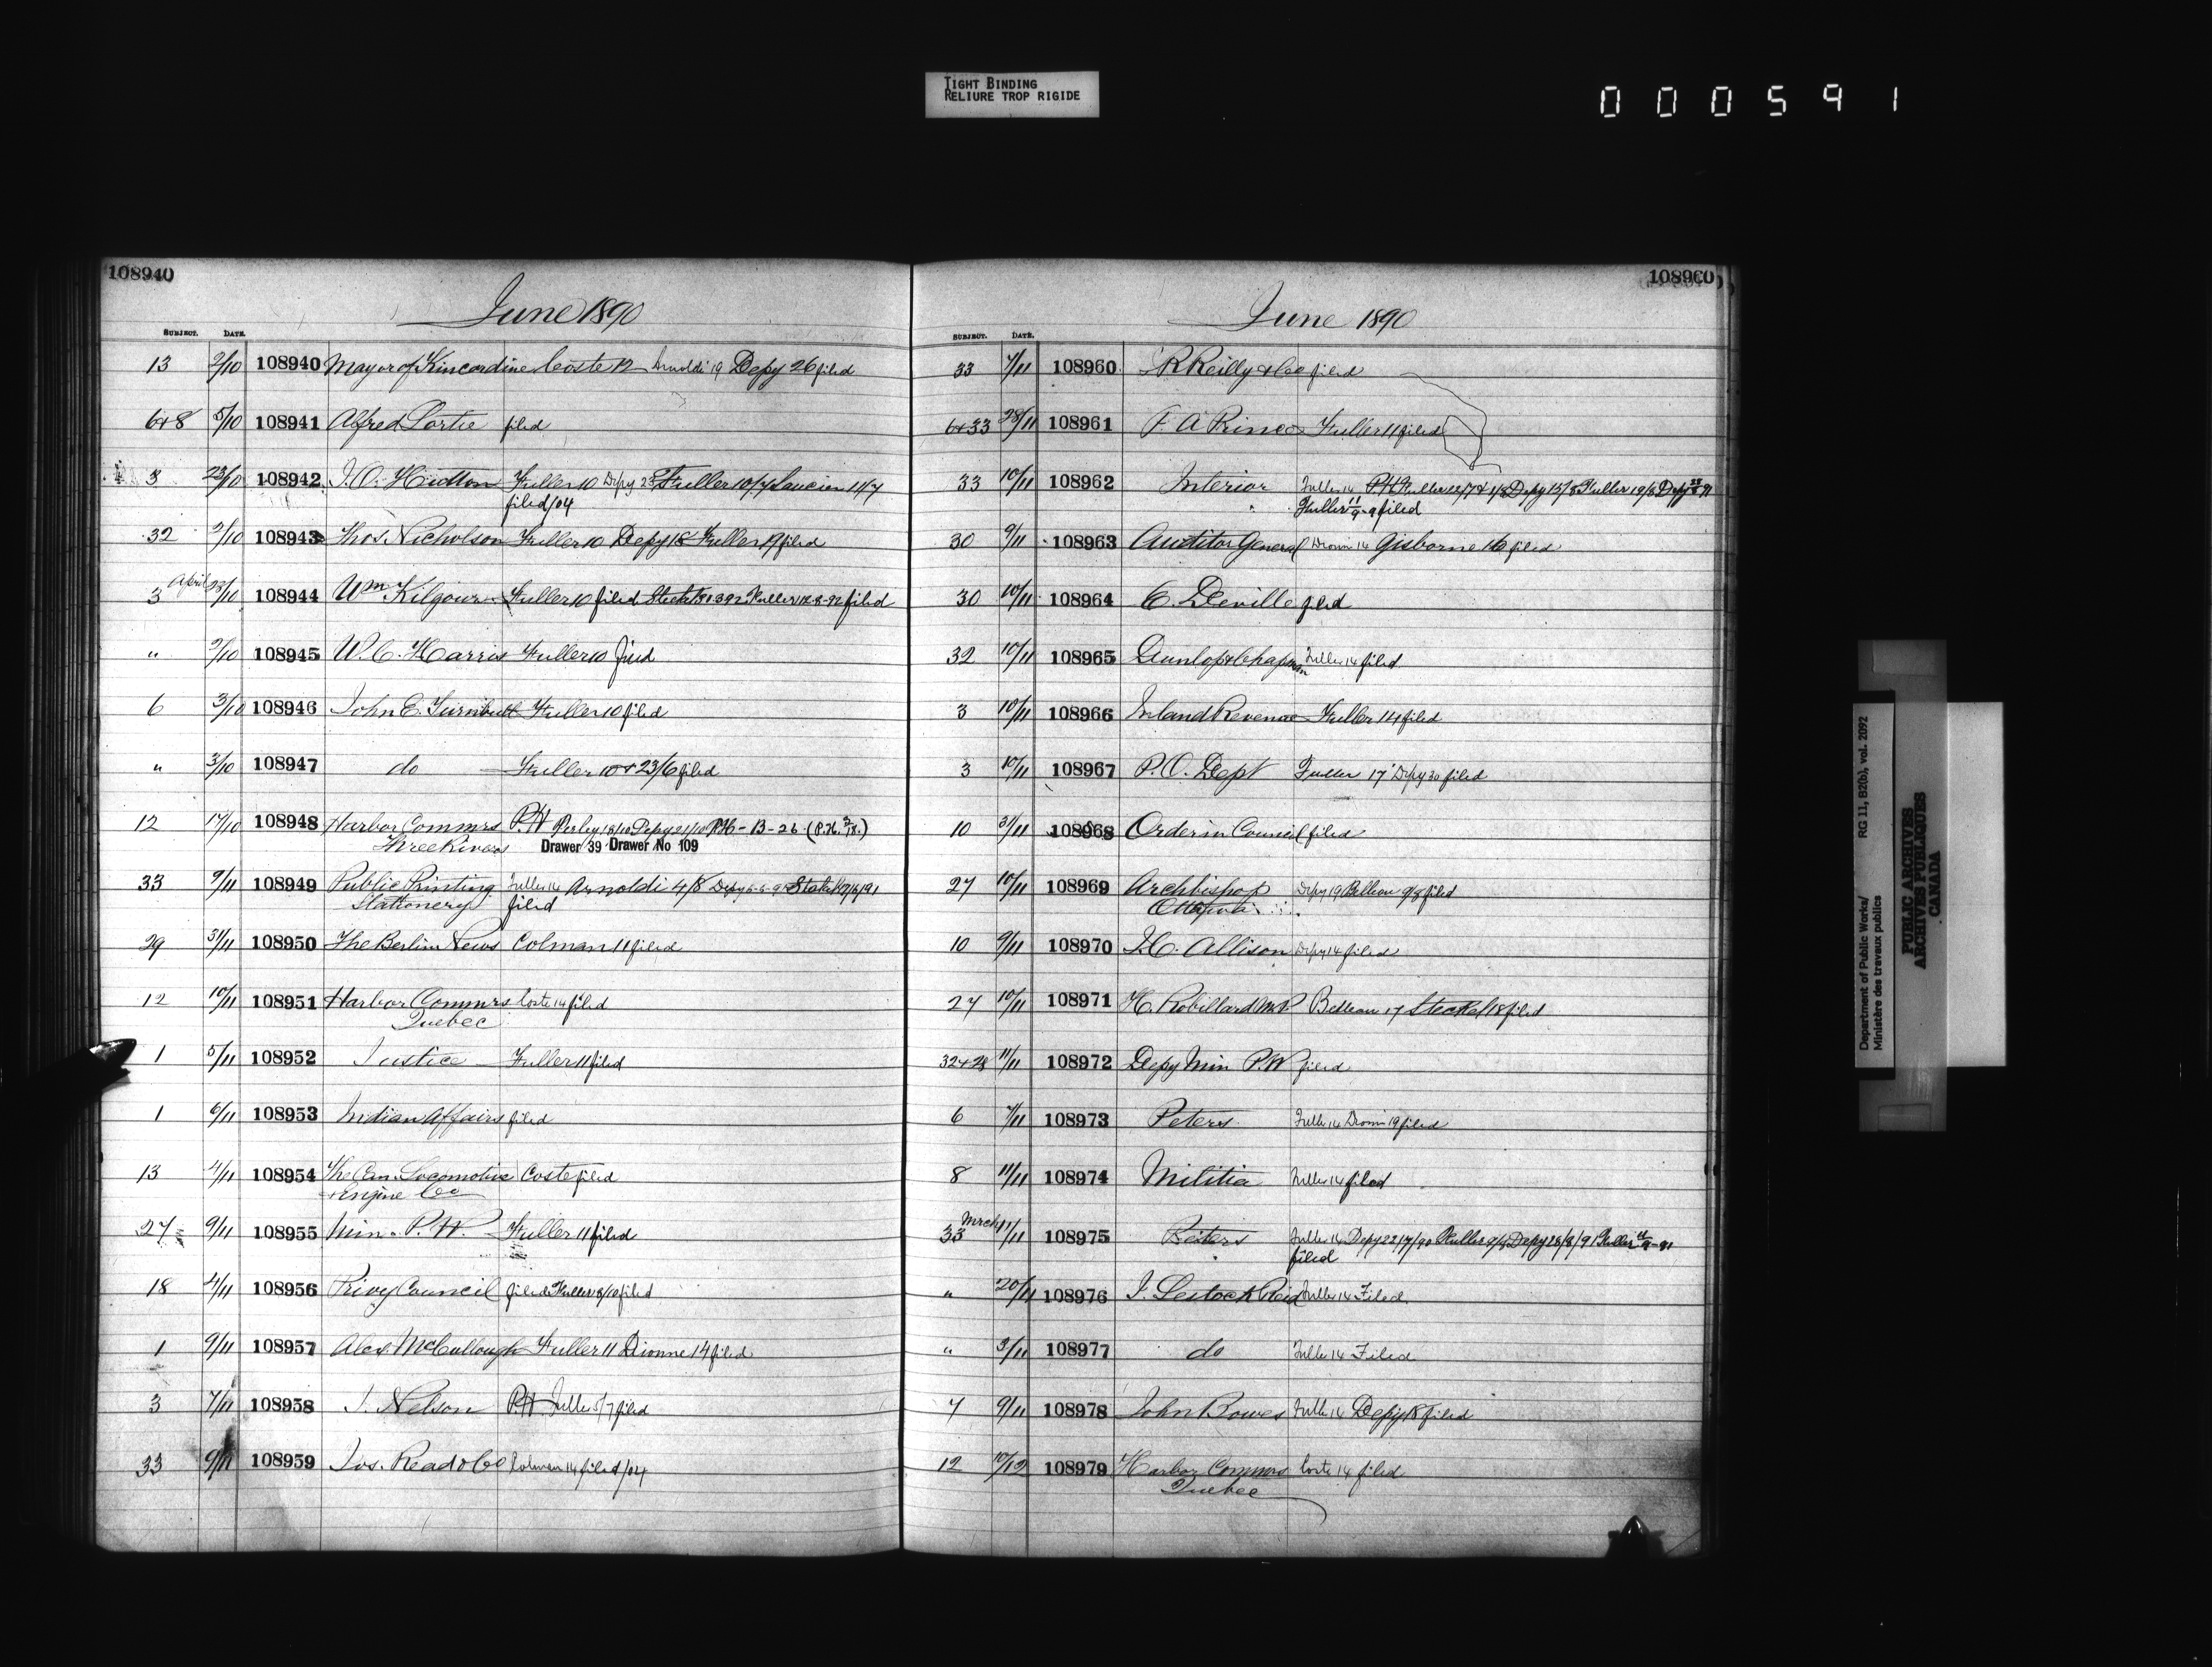 TIGHT BINDING
RELIURE TROP RIGIDE
000591
108940
June 1890
SUBJECT. DATE.
13 2/10 108940 Mayor of Kincardine Coste 12 Arnoldi 19 Depy 26 filed
6+8 5/10 108941 Alfred Lortie filed
3 23/10 108942 J.O. Hutton Fuller 10 Depy 23 Fuller 10/7 Saucier 11/7
filed/04
32 2/10 108943 Thos. Nicholson Fuller 10 Depy 18 Fuller 19 filed
April
3 23/10 108944 Wm Kilgour Fuller 10 filed Fuller 12-3-92 filed
" 2/10 108945 W.C. Harris Fuller 10 filed
6 3/10 108946 John E. Turnbull Fuller 10 filed
" 3/10 108947 do Fuller 10 + 23/6 filed
12 17/10 108948 Harbor Commrs P.H Perley 18/10 Depy 21/10 P.H - B - 26 (P.H. 2/18.)
Three Rivers Drawer 39 Drawer No 109
33 9/11 108949 Public Printing Fuller 14 Arnoldi 4/8
Stationery filed
29 31/11 108950 The Berlin News Colman 11 filed
12 10/11 108951 Harbor Commrs Coste 14 filed
Quebec
1 5/11 108952 Justice Fuller 11 filed
1 6/11 108953 Indian Affairs filed
13 4/11 108954 The Can. Locomotive Coste filed
+ Engine Co
27 9/11 108955 Min. P.W. Fuller 11 filed
18 4/11 108956 Privy Council filed Fuller 8/10 filed
1 9/11 108957 Alex McCullough Fuller 11 Dionne 14 filed
3 7/11 108958 J. Nelson P.H. Fuller 5/7 filed
33 9/11 108959 Jos. Read & Co Colman 14 filed/04
108960
June 1890
SUBJECT. DATE.
33 7/11 108960 R Reilly & Co filed
6+33 28/11 108961 F. A Prince Fuller 11 filed
33 10/11 108962 Interior Fuller 14 P.H Fuller 22/7 + 1/8 Depy 15/8 Fuller 19/8 Depy
" Fuller 11/9-9 filed
30 9/11 108963 Auditor General Dionne 14 Gisborne 16 filed
30 10/11 108964 E. Deville filed
32 10/11 108965 Dunlop & Chapman Fuller 14 filed
3 10/11 108966 Inland Revenue Fuller 14 filed
3 10/11 108967 P.O. Dept Fuller 17 Depy 30 filed
10 31/11 108968 Order in Council filed
27 10/11 108969 Archbishop Depy 19 Belleau 9/8 filed
Ottawa
10 9/11 108970 J.C. Allison Depy 14 filed
27 10/11 108971 H. Robillard M.P Belleau 17 Steckel 18 filed
32+28 11/11 108972 Depy Min P.W filed
6 7/11 108973 Peters Fuller 14 Dionne 19 filed
8 11/11 108974 Militia Fuller 14 filed
Mrch
33 11/11 108975 Peters Fuller 14 Depy 22/7/90 Fuller 9/4 Depy 28/8/91 Fuller
filed
" 20/11 108976 J. Lestock Reid Fuller 14 Filed
" 3/11 108977 do Fuller 14 Filed
7 9/11 108978 John Bowes Fuller 14 Depy 18 filed
12 10/12 108979 Harbor Commrs Coste 14 filed
Quebec
Department of Public Works/ RG 11, B2(b), vol. 2092
Ministère des travaux publics
PUBLIC ARCHIVES
ARCHIVES PUBLIQUES
CANADA